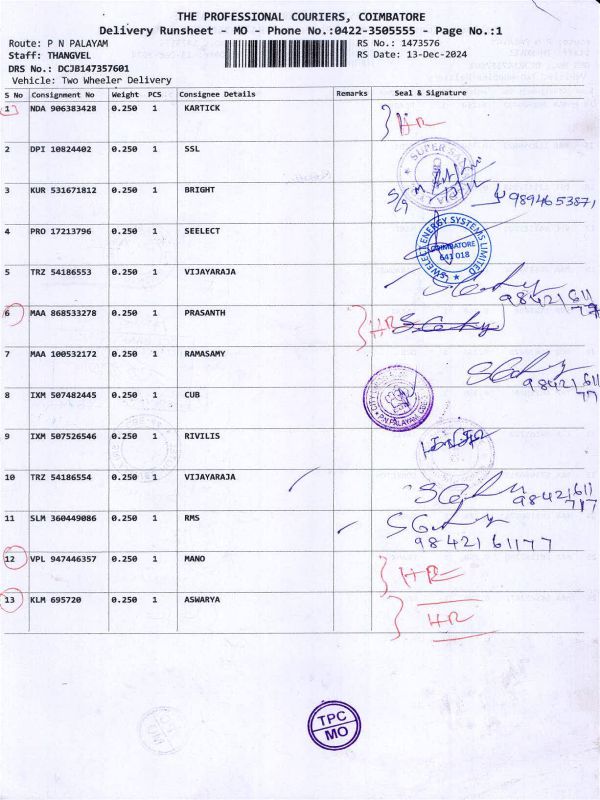 THE PROFESSIONAL COURIERS, COIMBATORE
Delivery Runsheet - MO - Phone No.:0422-3505555 - Page No.:1
Route: P N PALAYAM RS No.: 1473576
Staff: THANGVEL RS Date: 13-Dec-2024
DRS No.: DCJB147357601
Vehicle: Two Wheeler Delivery
S No Consignment No Weight PCS Consignee Details Remarks Seal & Signature
1 NDA 906383428 0.250 1 KARTICK HR
2 DPI 10824402 0.250 1 SSL
3 KUR 531671812 0.250 1 BRIGHT 9894653871
4 PRO 17213796 0.250 1 SEELECT
SWELECT ENERGY SYSTEMS LIMITED
COIMBATORE
641 018
5 TRZ 54186553 0.250 1 VIJAYARAJA
98421 611
77
6 MAA 868533278 0.250 1 PRASANTH HR
7 MAA 100532172 0.250 1 RAMASAMY
98421 611
77
8 IXM 507482445 0.250 1 CUB
P.N PALAYAM
9 IXM 507526546 0.250 1 RIVILIS
10 TRZ 54186554 0.250 1 VIJAYARAJA
98421 611
77
11 SLM 360449086 0.250 1 RMS
98421 61177
12 VPL 947446357 0.250 1 MANO HR
13 KLM 695720 0.250 1 ASWARYA HR
TPC
MO